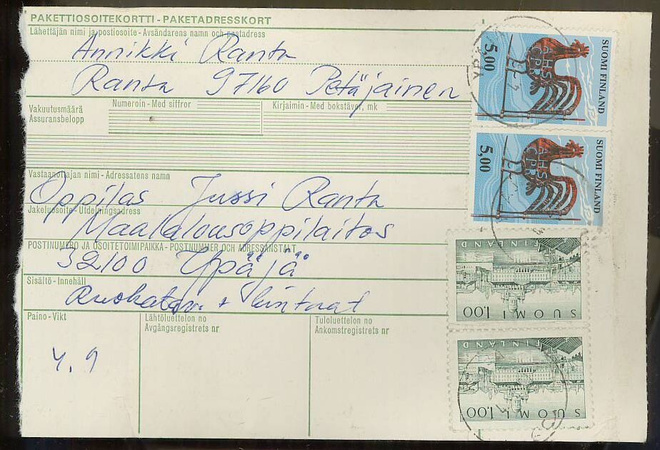 PAKETTIOSOITEKORTTI - PAKETADRESSKORT
Lähettäjän nimi ja postiosoite - Avsändarens namn och postadress
Annikki Ranta
Ranta 97160 Petäjäinen
Vakuutusmäärä
Assuransbelopp
Numeroin - Med siffror
Kirjaimin - Med bokstäver, mk
Vastaanottajan nimi - Adressatens namn
Oppilas Jussi Ranta
Jakeluosoite - Utdelningsadress
Maatalousoppilaitos
POSTINUMERO JA OSOITETOIMIPAIKKA - POSTNUMMER OCH ADRESSANSTALT
32100 Ypäjä
Sisältö - Innehåll
Ruokatav.
Paino - Vikt
Lähtöluettelon no
Avgångsregistrets nr
Tuloluettelon no
Ankomstregistrets nr
4.9
5,00
SUOMI FINLAND
5,00
SUOMI FINLAND
FINLAND
SUOMI 1.00
FINLAND
SUOMI 1.00